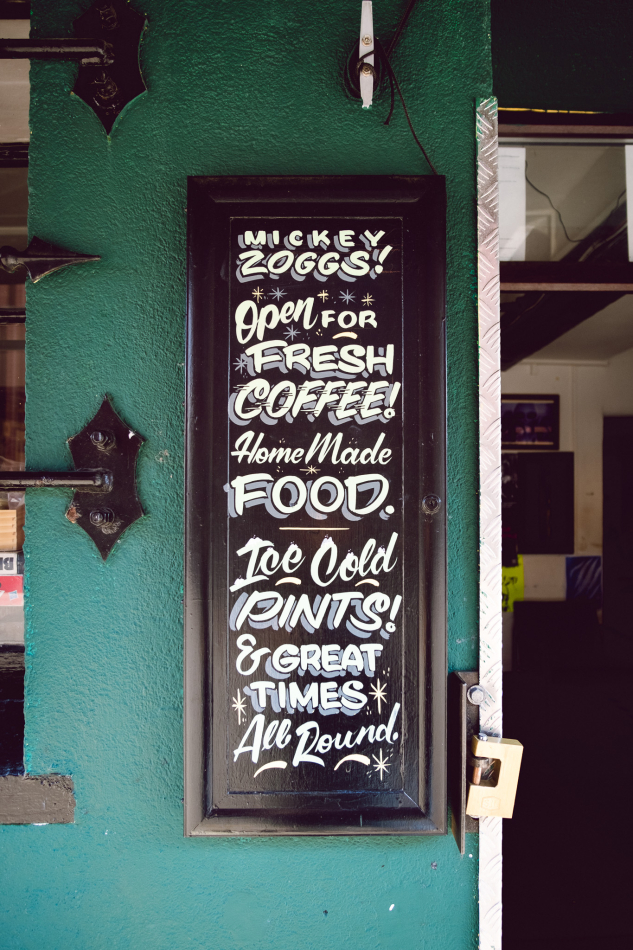 MICKEY
ZOGGS!
Open FOR
FRESH
COFFEE!
Home Made
FOOD.
Ice Cold
PINTS!
& GREAT
TIMES
All Round.